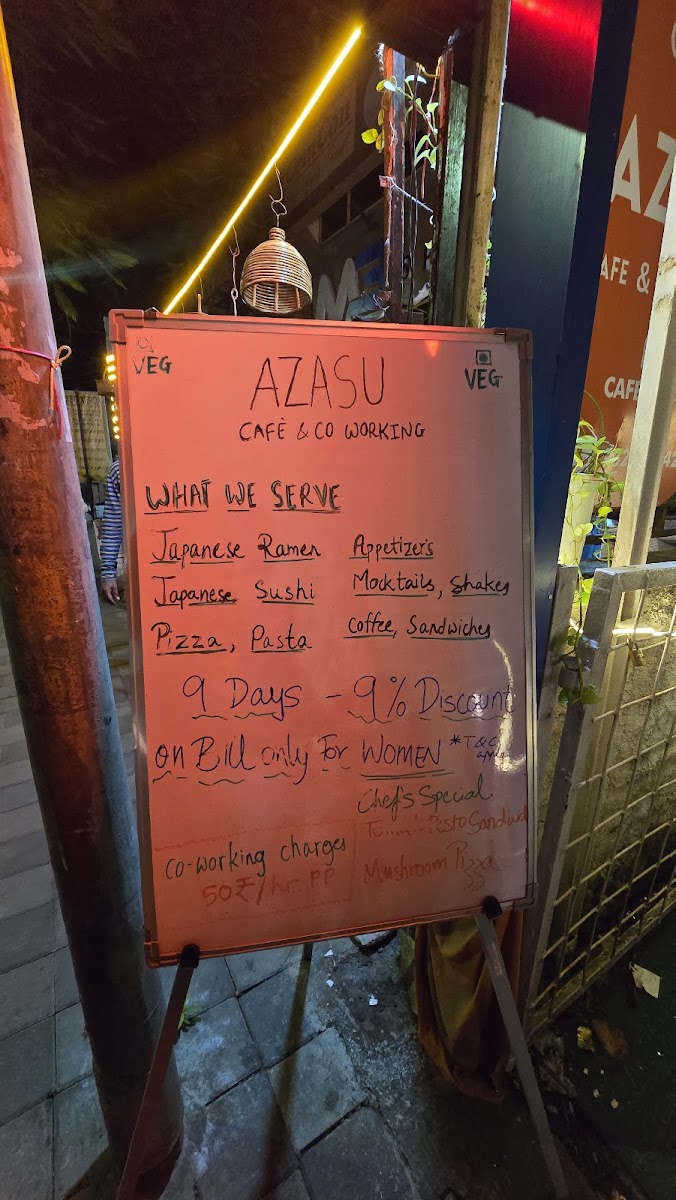 VEG
VEG
AZASU
CAFÈ & CO WORKING
WHAT WE SERVE
Japanese Ramen
Appetizer's
Japanese Sushi
Mocktails, Shakes
Pizza, Pasta
Coffee, Sandwiches
9 Days - 9% Discount
on Bill only For WOMEN *T&C
Chef's Special
Pesto Sandwich
Mushroom Pizza
co-working charges
50₹/hr. PP
AZ
AFE &
CAFE